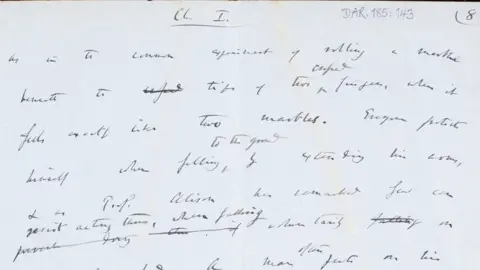 Ch. I.
DAR. 185: 143
(8
as in the common experiment of rolling a marble
crossed
beneath the tips of two fingers, when it
feels exactly like two marbles. Everyone protects
to the ground
himself when falling, by extending his arms,
& as Prof. Alison has remarked few can
resist acting thus, when falling
when voluntarily falling on
prevent doing
often
a man puts on his